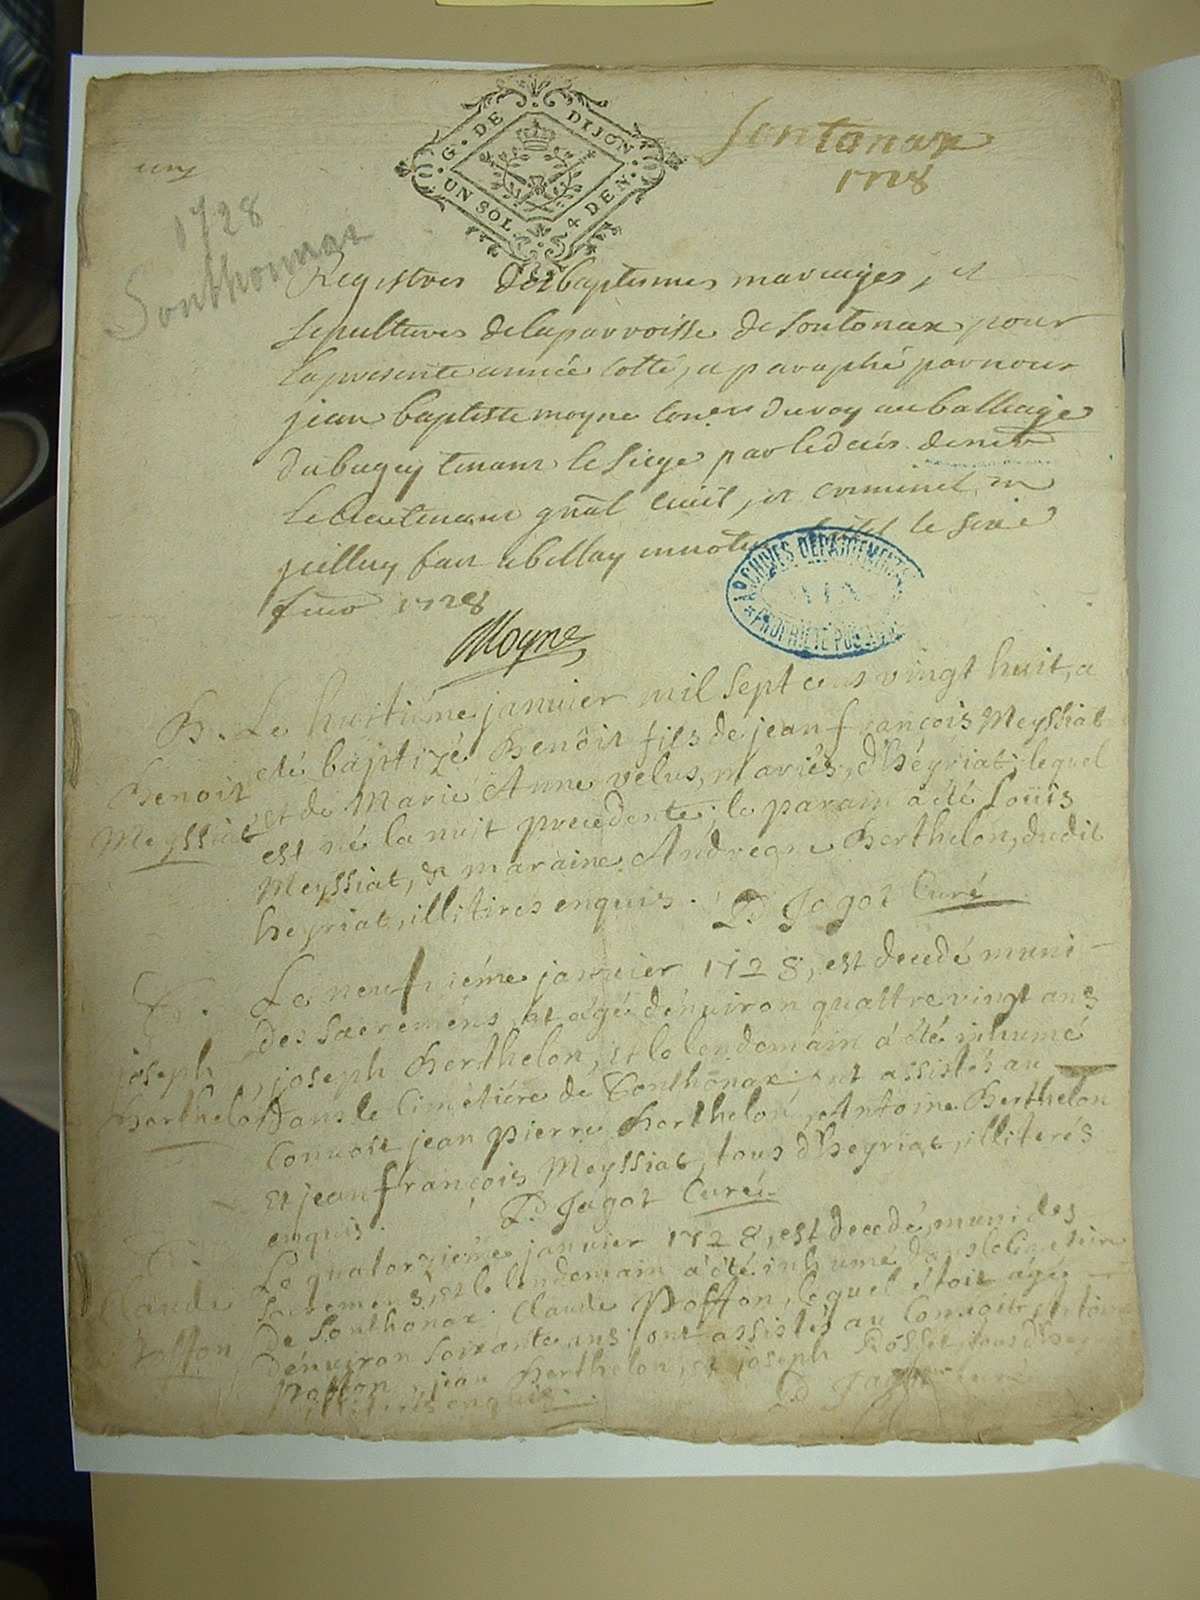 G. DE DIJON
UN SOL 4 DEN.
Sontonax
1728
1728
Sonthonnax
Registres des baptesmes mariages, et
sepultures de la parroisse de Sontonax pour
la presente année cotté, et paraphé par nous
jean baptiste moyne con.er du roy au balliage
du bugey tenant le siege par le deces de mr
le lieutenant gnal civil, et criminel, en
icelluy fait a bellay en notre hotel le
1728
Moyne
ARCHIVES DEPARTEMENTALES
AIN
PROPRIÉTÉ PUBLIQUE
B. Le huitiéme janvier mil sept cens vingt huit, a
eté baptizé Benoit fils de jean françois Meyssiat
Benoit
et de Marie Anne velus, mariés, d'heyriat, lequel
Meyssiat
est né la nuit precedente; le parain a été Loüis
Meyssiat, & maraine Andreane Berthelon, dudit
heyriat, illitirés enquis. P. Jagot Curé
Le neufviéme janvier 1728, est decedé muni
des sacremens, et agé d'environ quattre vingt ans
joseph
joseph Berthelon, et le lendemain a été inhumé
Berthelon
dans le cimétiére de Sonthonax; ont assistés au
convoit jean pierre Berthelon, Antoine Berthelon
Et jean françois Meyssiat, tous d'heyriat, illiterés
enquis. P. Jagot Curé
Le quatorziéme janvier 1728, est decedé, muni des
sacremens, et le lendemain a été inhumé dans le Cimetiére
Claude
de Sonthonax, Claude Poffon, lequel étoit agé
Poffon
d'environ soixante ans; ont assistés au convoit, Antoine
Poffon, jean Berthelon, et joseph Rosset, tous d'hey
illiterés enquis. P. Jagot Curé